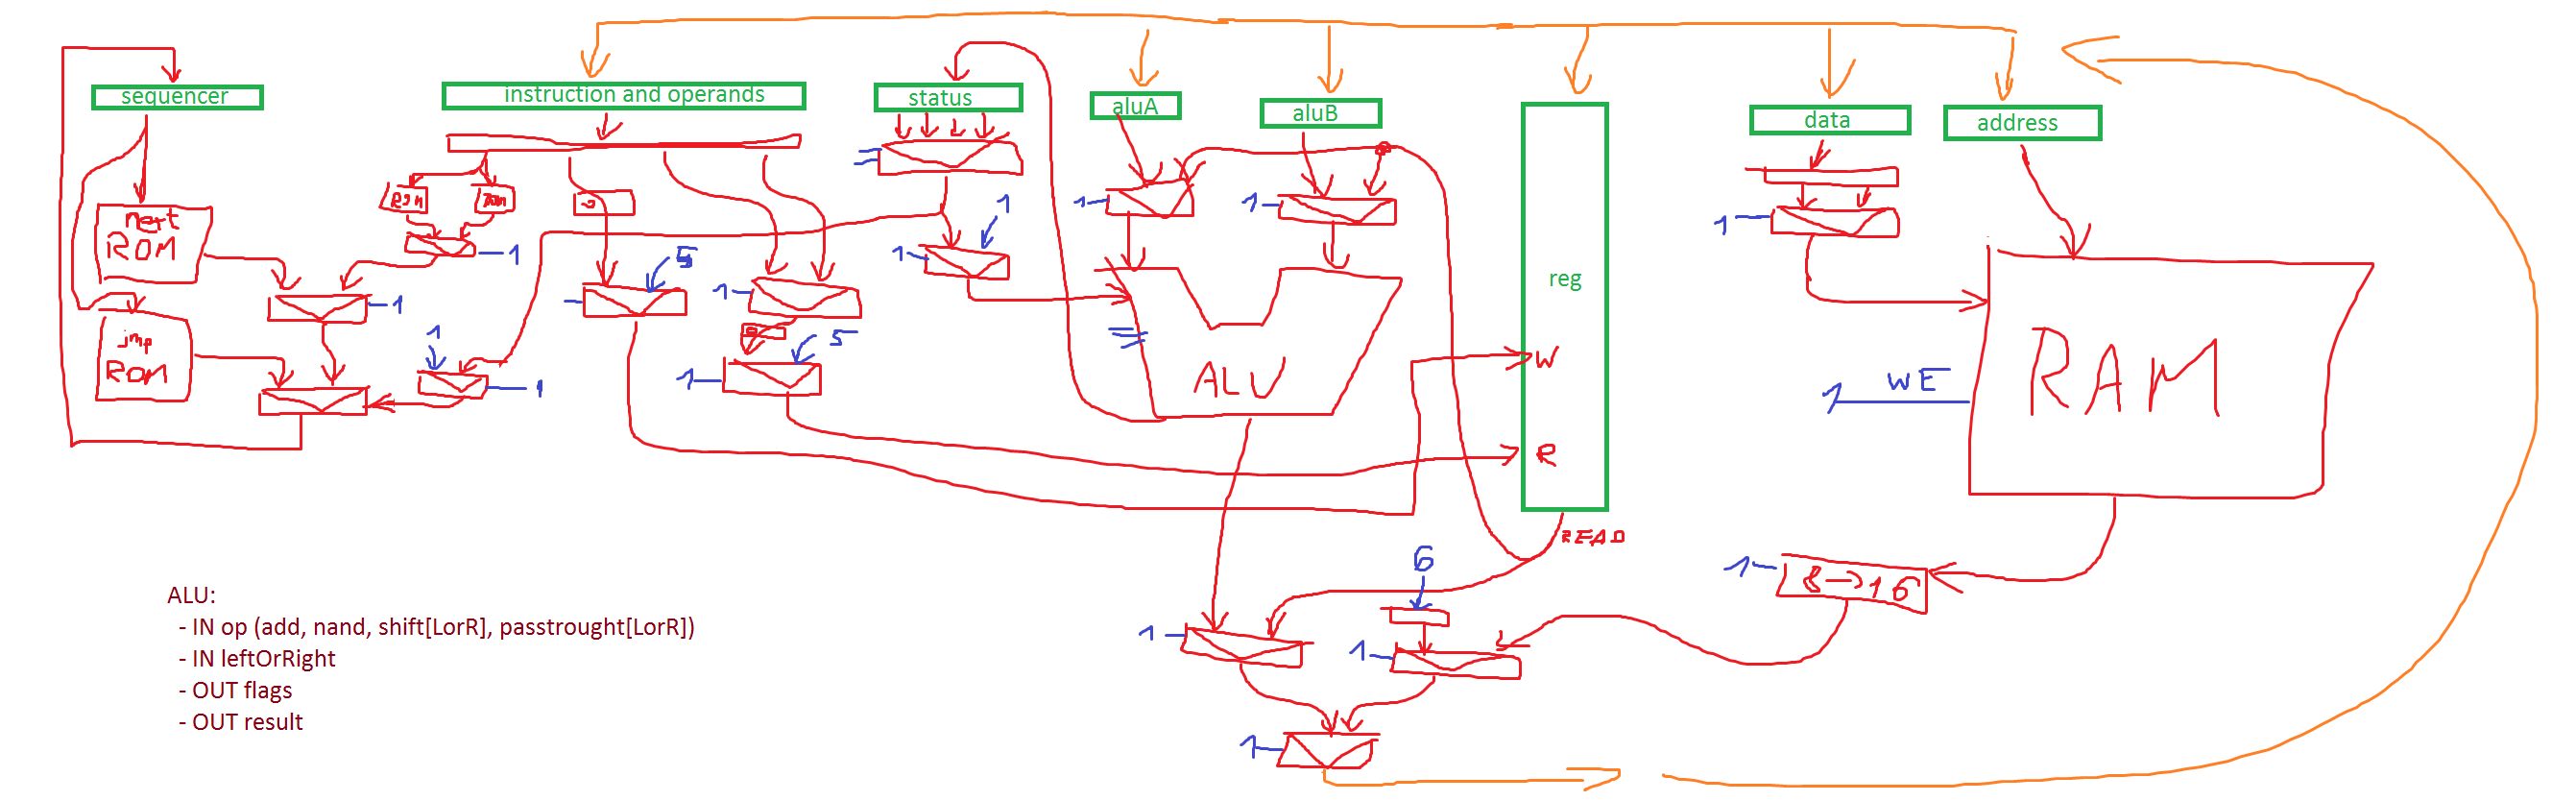 sequencer
instruction and operands
status
aluA
aluB
data
address
next
ROM
1
1
1
1
1
1
5
1
reg
1
jmp
ROM
1
1
5
1
ALU
W
R
1
WE
RAM
READ
6
1
8->16
1
1
1
ALU:
- IN op (add, nand, shift[LorR], passtrought[LorR])
- IN leftOrRight
- OUT flags
- OUT result